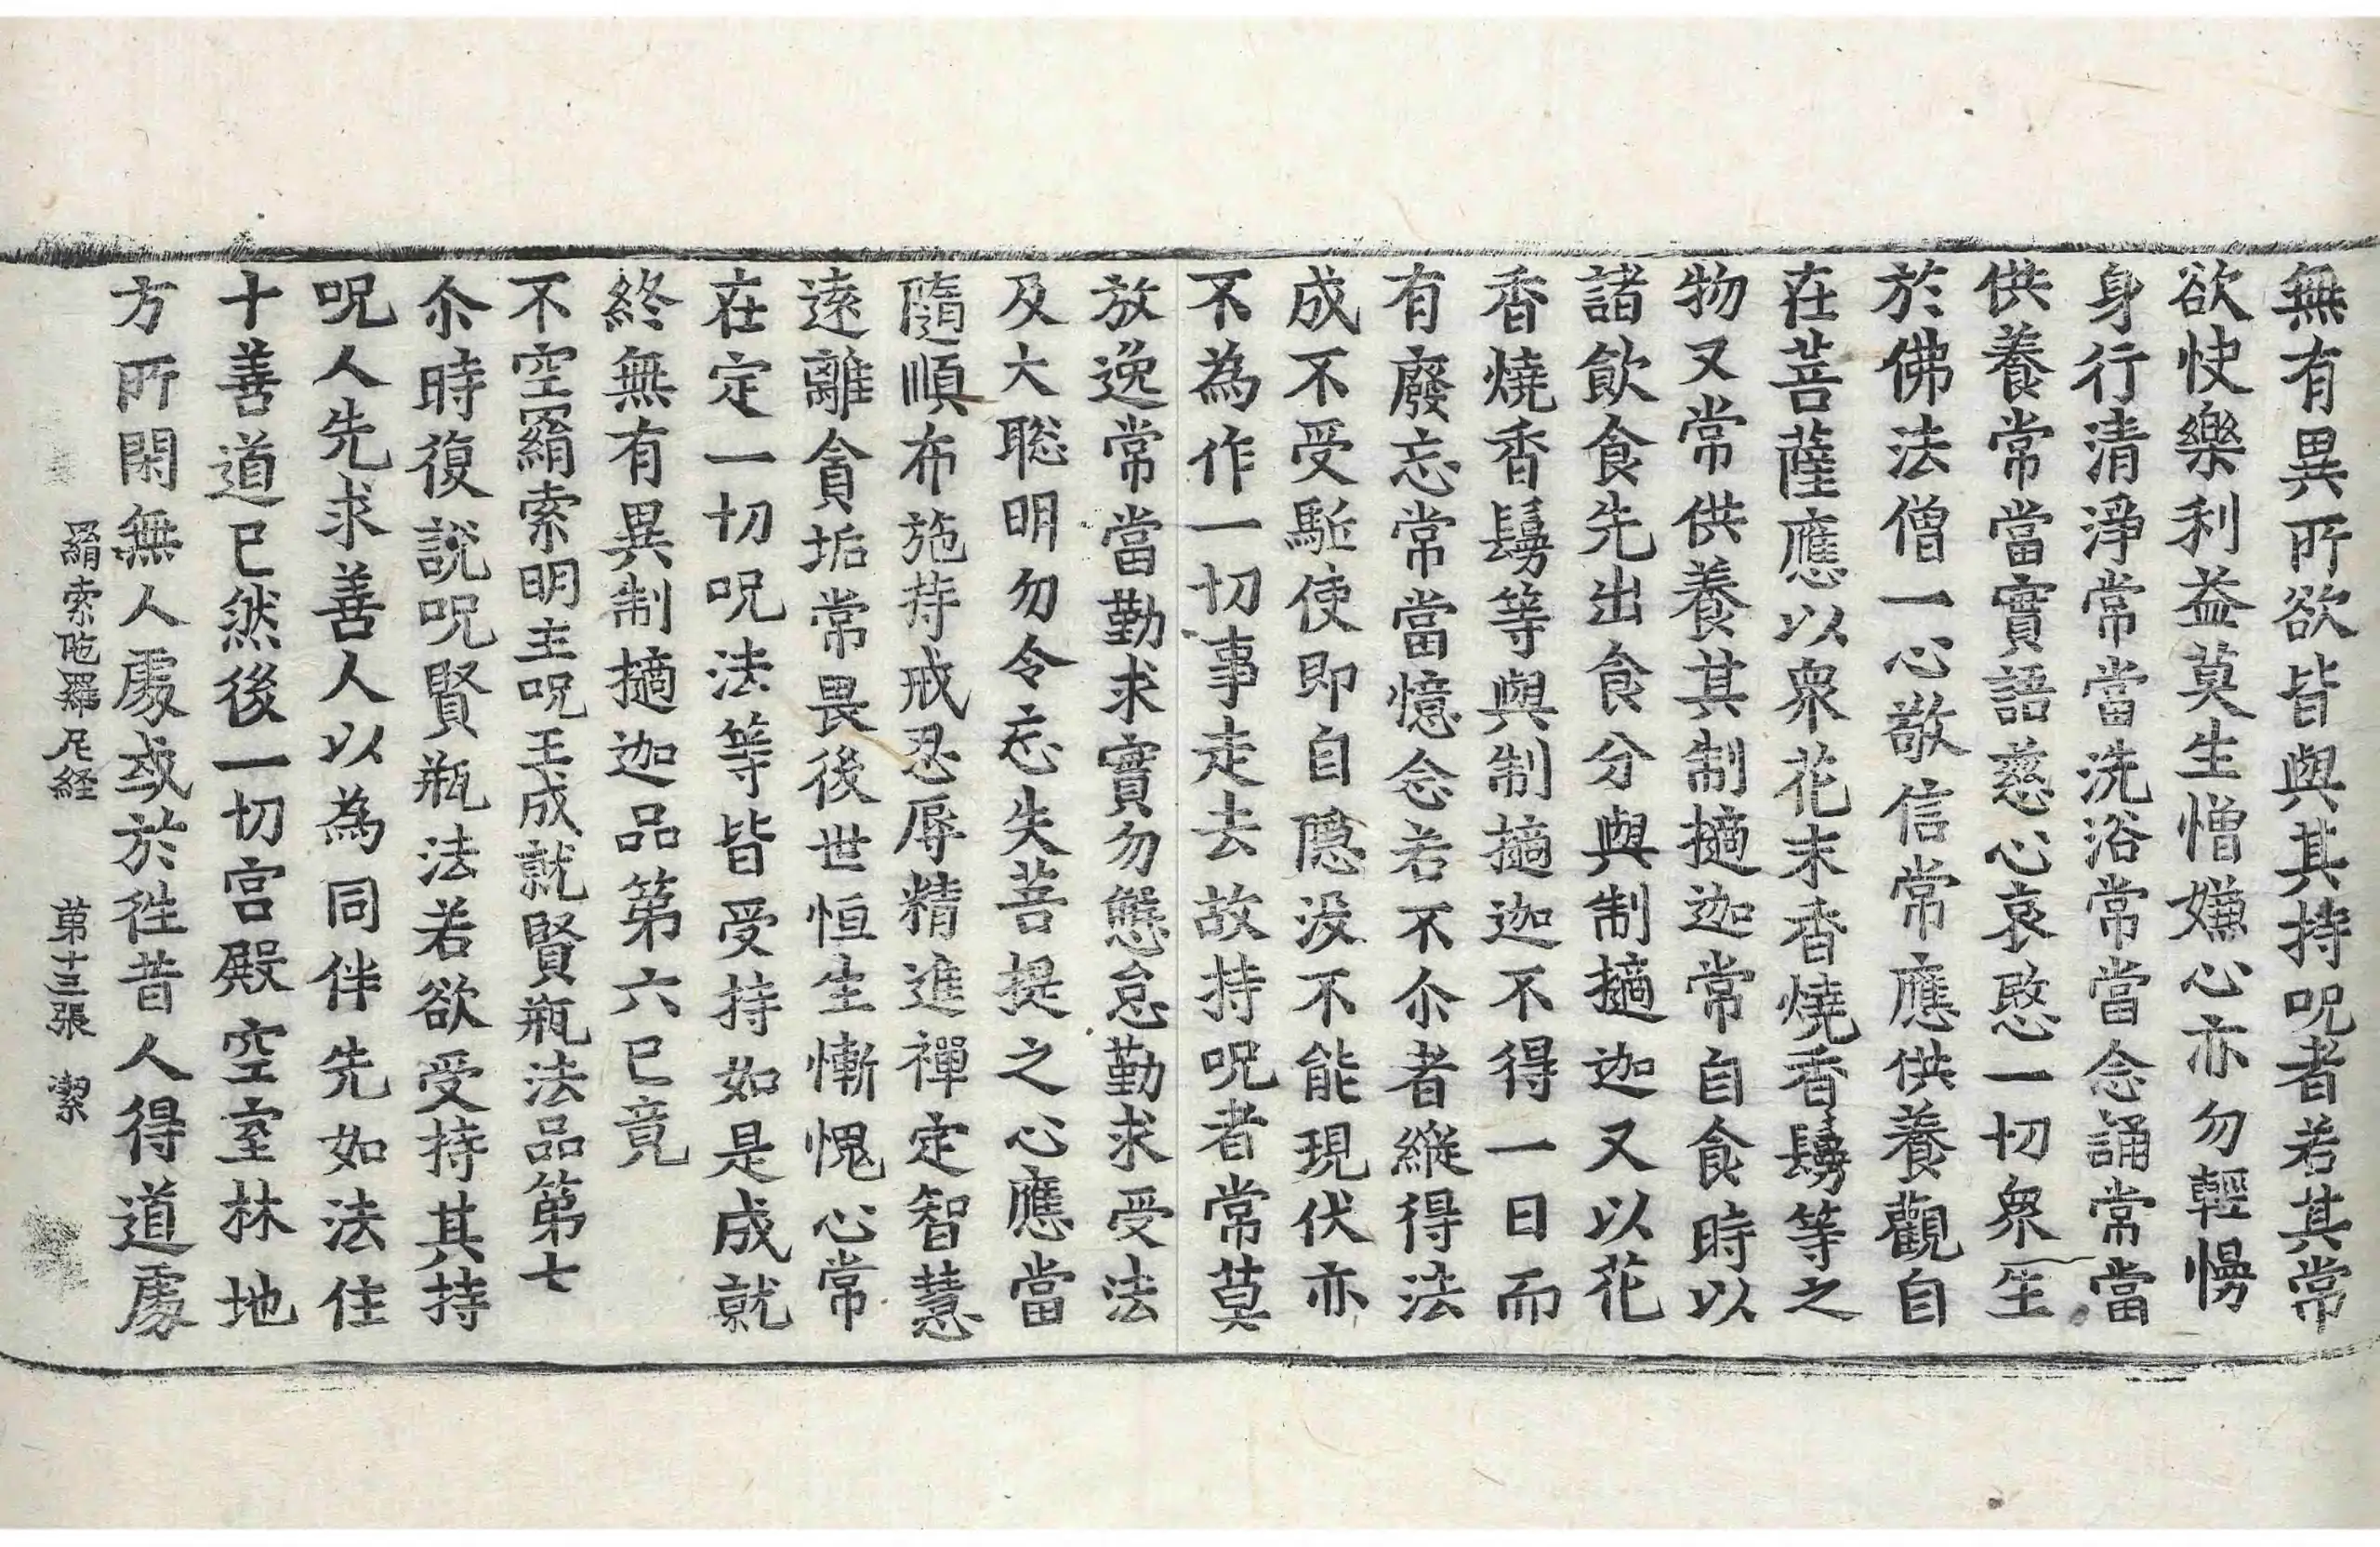 無有異所欲皆與其持呪者若其常
欲快樂利益莫生憎嫌心亦勿輕慢
身行清淨常當洗浴常當念誦常當
供養常當實語慈心哀愍一切衆生
於佛法僧一心敬信常應供養觀自
在菩薩應以衆花末香燒香鬘等之
物又常供養其制擿迦常自食時以
諸飲食先出食分與制擿迦又以花
香燒香鬘等與制擿迦不得一日而
有廢忘常當憶念若不尒者縱得法
成不受駈使即自隱没不能現伏亦
不為作一切事走去故持呪者常莫
放逸常當勤求實勿懈怠勤求受法
及大聡明勿令忘失菩提之心應當
隨順布施持戒忍辱精進禪定智慧
遠離貪垢常畏後世恒生慚愧心常
在定一切呪法等皆受持如是成就
終無有異制擿迦品第六已竟
不空羂索明主呪王成就賢瓶法品第七
尒時復說呪賢瓶法若欲受持其持
呪人先求善人以為同伴先如法住
十善道已然後一切宮殿空室林地
方所閑無人處或於徃昔人得道處
羂索陁羅尼経 苐十三張 潔